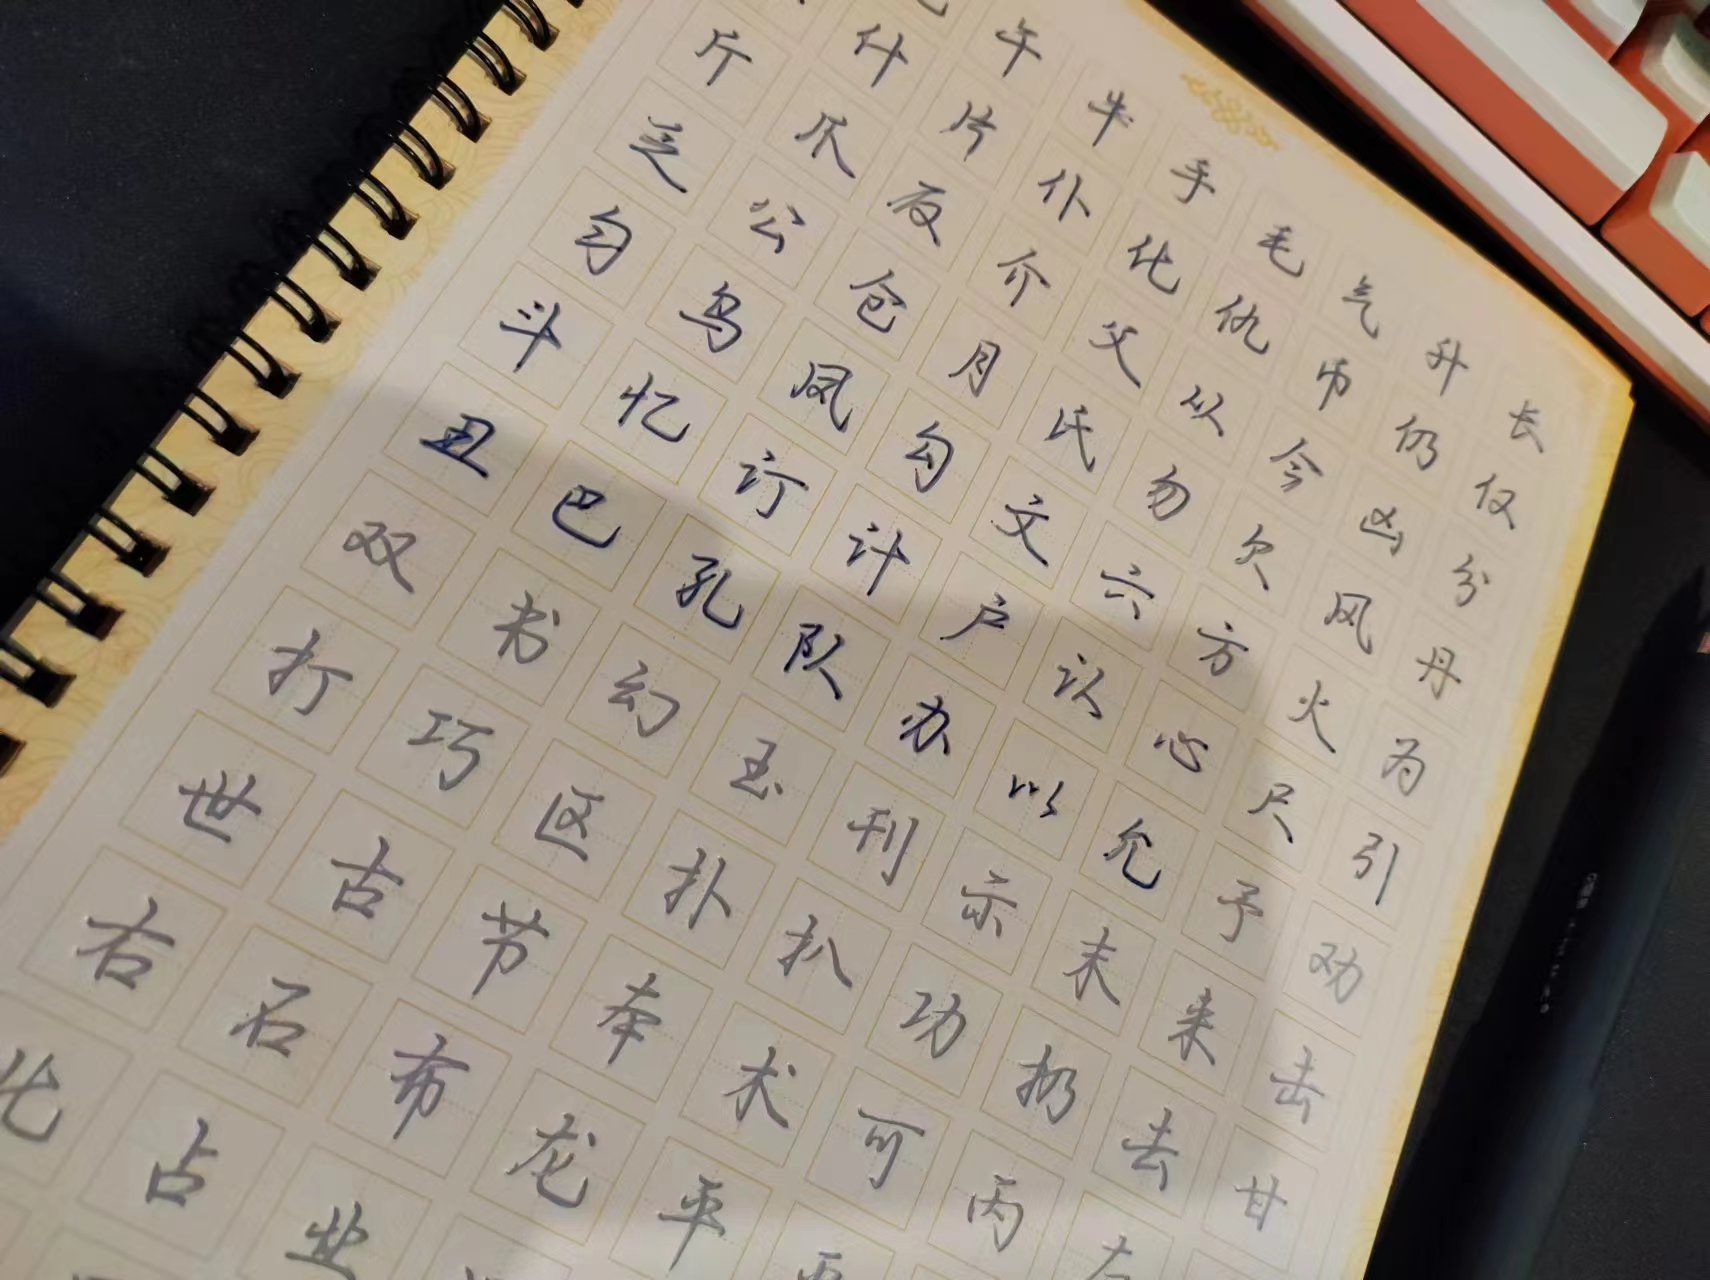 午牛手毛气升长
什片仆化仇币仍仅
斤爪反介父从今凶分
乏公仓月氏勿欠风丹
匀乌凤勾文六方火为
斗忆订计户认心尺引
丑巴孔队办以允予劝
双书幻玉刊示末来击
打巧区扑扒功扔去甘
世古节本术可丙左
右石布龙平
北占业